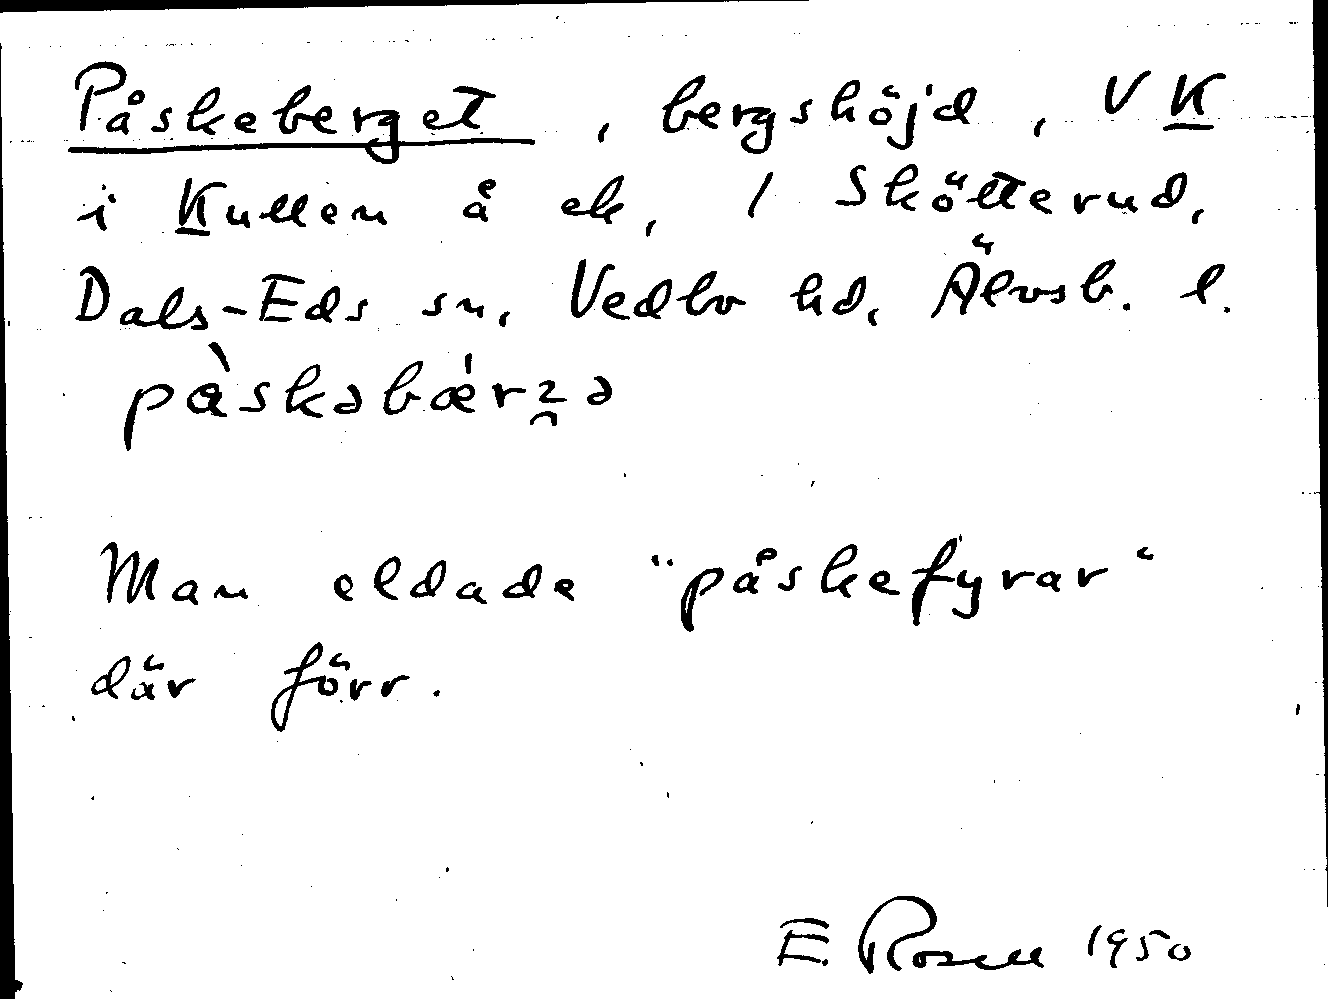 Påskeberget, bergshöjd, V K
i Kullen å ek, 1 Skötterud,
Dals-Eds sn, Vedbo hd, Älvsb. l.
Man eldade "påskefyrar"
där förr.
E. Rosell 1950